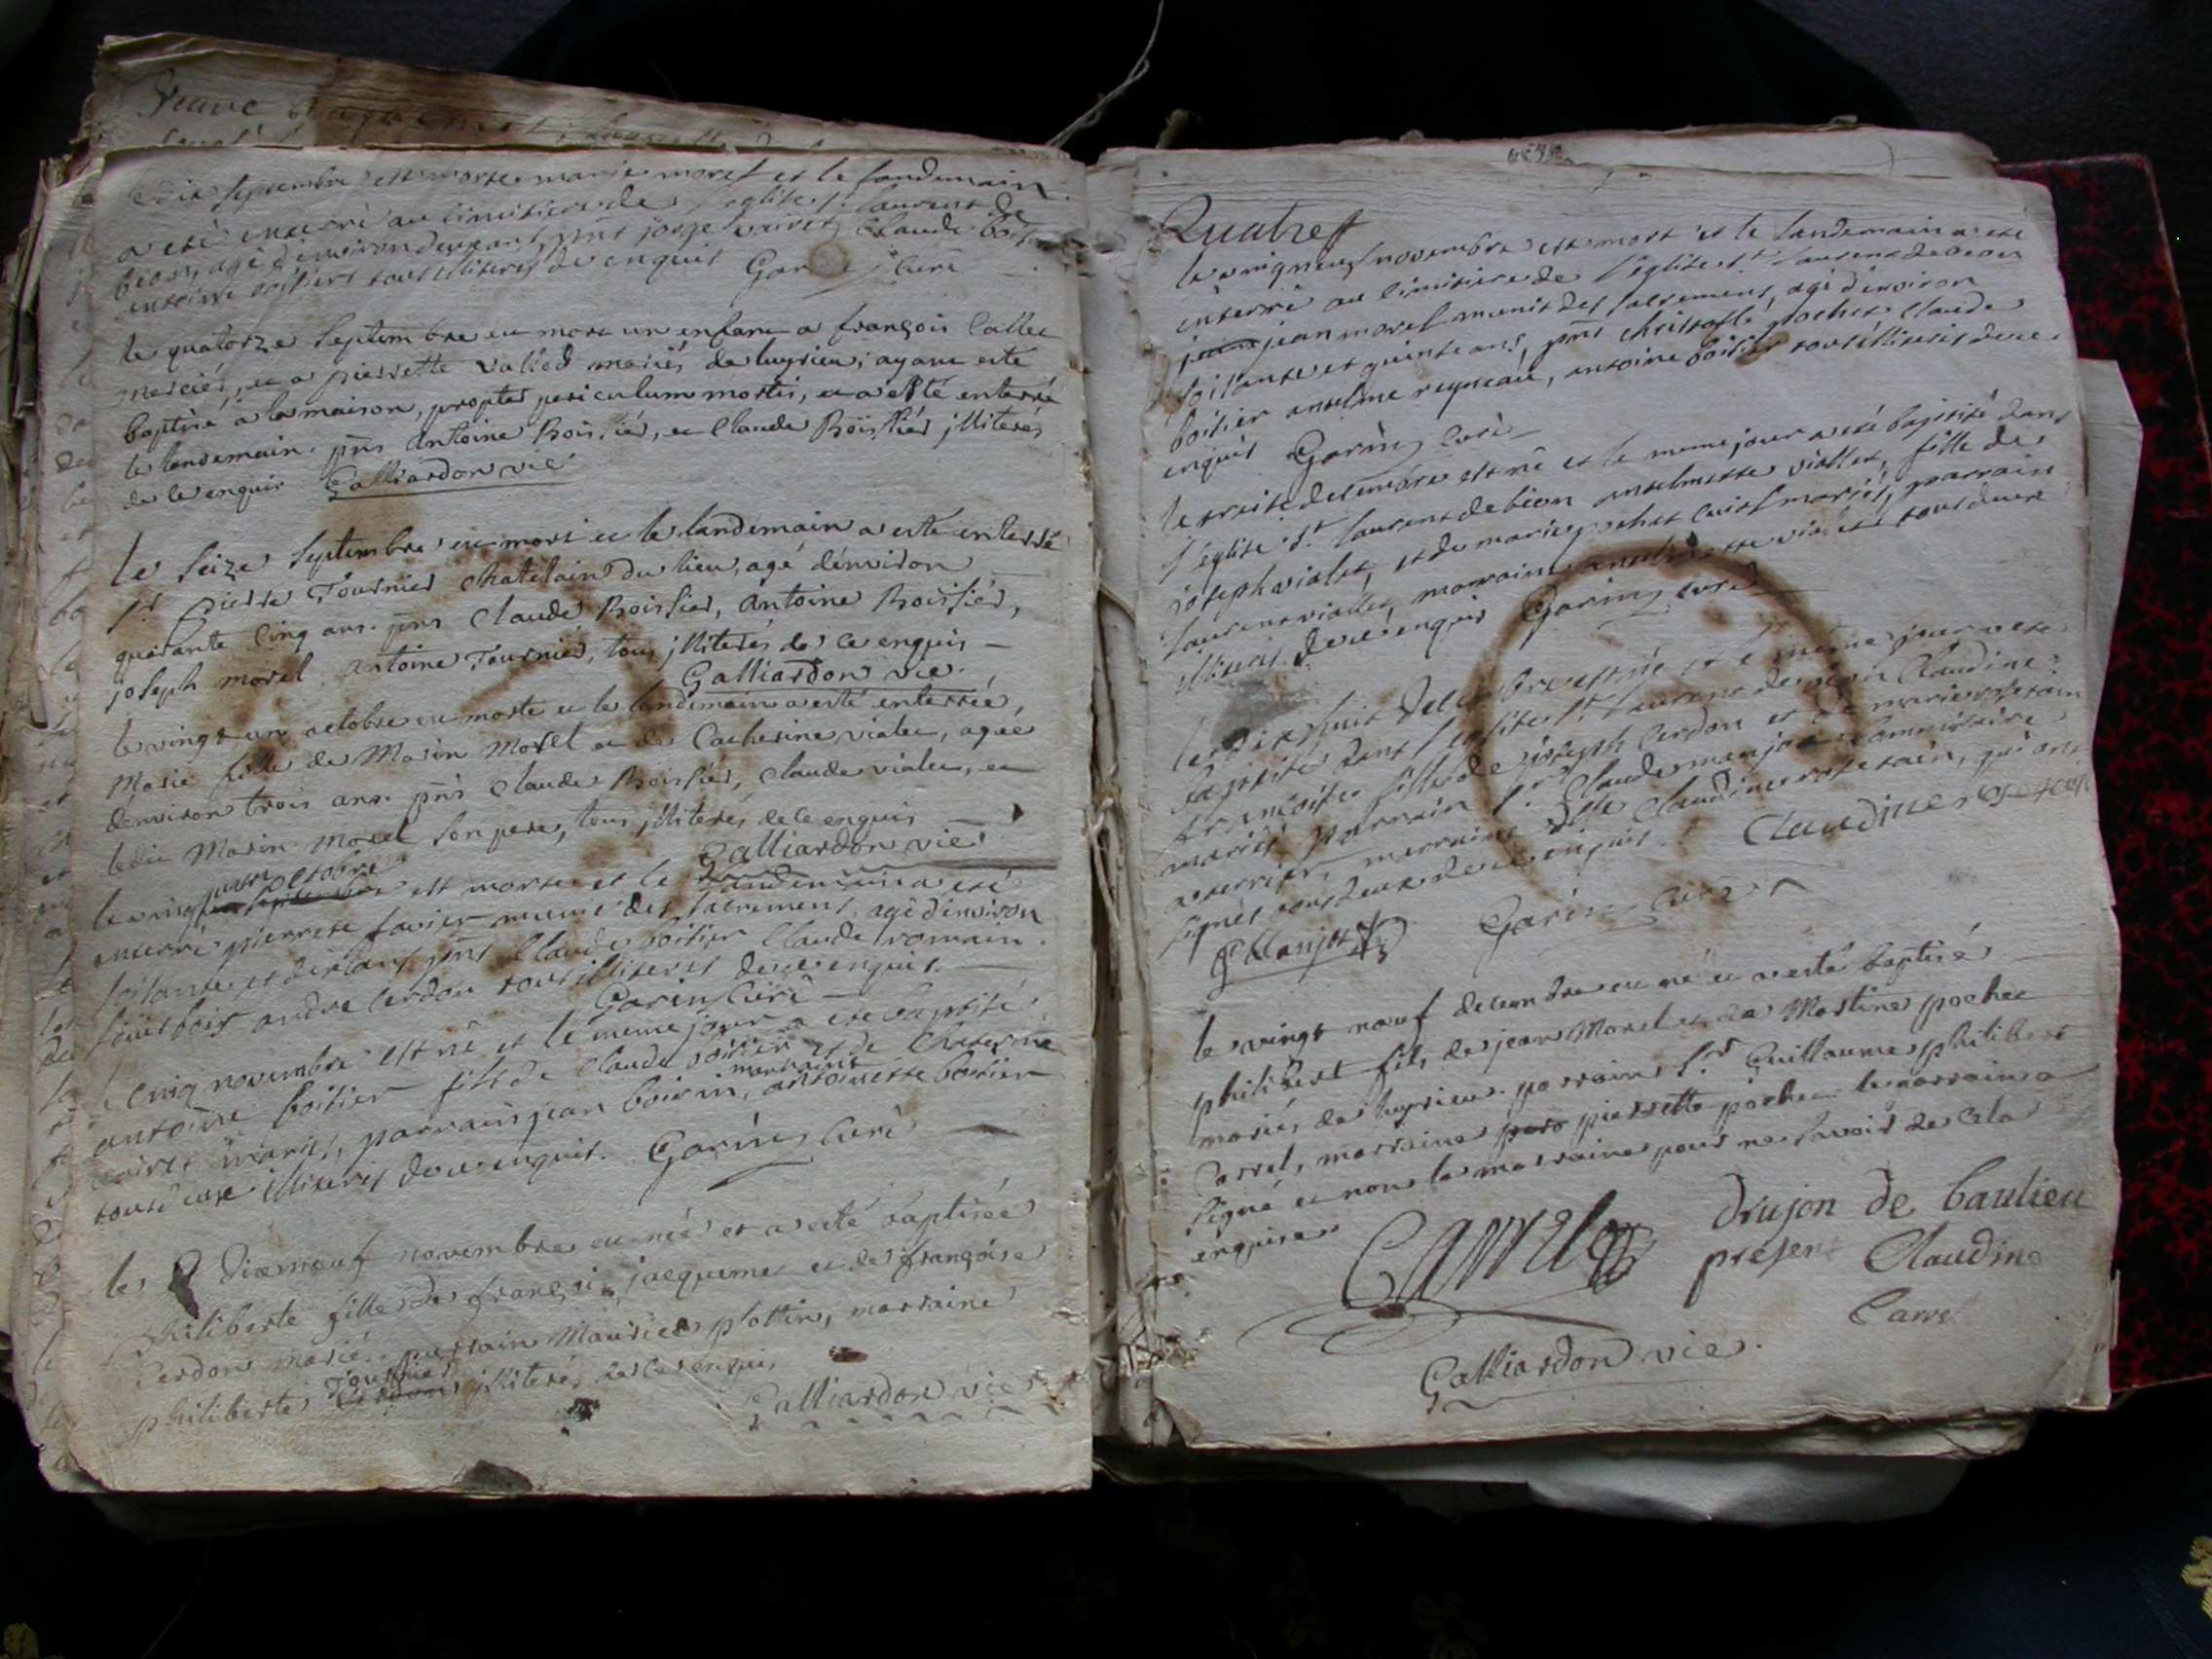 veuve
dix septembre est morte marie morel et le landemain
a eté enterré au cimitiere de l'eglise st laurent de
beon, agé d'environ deux ans, pnt jorge vairet, Claude boit
antoine boitiers tous illiteres de ce enquis Garin curé
le quatorze septembre eu mort un enfant a françois Callet
mercier, et a pierrette Vallod mariés de luyrieu, ayant esté
baptisé a la maison, propter periculum mortis, et a esté enterré
le landemain. pnts Antoine Roissiér, et Claude Roissiér jlliterés
de ce enquis Galliardon vic
le seize septembre est mort et le landemain a esté enterré
sr pierre Tournier chatelain du lieu, agé d'environ
quarante cinq ans. pnts Claude Roissier, antoine Roissiér,
joseph morel antoine Tournier, tous jlliterés de ce enquis
Galliardon vic.
le vingt un octobre est morte et le landemain a esté enterrée,
Marie fille de Marin Morel et de Catherine vialet, agée
denviron trois ans. pnts Claude Roissiér, Claude vialet, et
ledit Marin Morel son pere, tous jlliterés de ce enquis
Galliardon vic
quatre octobre
le vingt un septembre est morte et le landemain a eté
enterré pierrete favier munie des sacrements, agé d'environ
soisante et dix ans, pnts Claude boitier Claude romain
andre Cerdon tous illiteres de ce enquis.
Garin curé
le cinq novembre est né et le meme jour a eté baptisé
antoine boitier fils de Claude boitier et de Catherine
mariés, parrain jean boirin, marraine antoinette boitier
tous deux illiteris de ce enquis. Garin curé
le dixneuf novembre est née et a esté baptisée
philiberte fille de françois jacquemet et de françoise
Cerdon mariés. parrain Maurice plottin, marraine
philiberte Tournier Cerdon jlliterés de ce enquis
Galliardon vic
Quatre
le vingneuf novembre est mort et le landemain a eté
enterré au cimitiere de l'eglise st laurent de beon
jean jean morel munit des sacrements, agé d'environ
soisante et quinze ans, pnts christofle pochet Claude
boitier anselme reyneau, antoine boitier tous illiteris de ce
enquis Garin curé
le treise decembre est né et le meme jour a eté baptisé dans
l'église st laurent de beon anselmette viallet, fille de
joseph vialet, et de marie pochet mariés, parrain
laurent viallet, marraine anselmette vialet tous deux
illiteris de ce enquis Garin curé
le dix huit decembre est né et le même jour a eté
baptisé dans l'eglise st laurent de beon Claudine
francoise fille de joseph Cerdon et de marie
mariés parrain sr Claude manjot commissaire
a terrier, marraine dlle Claudine qui ont
signés tous deux de ce enquis. Claudine
C Manjot Garin curé
le vingt neuf decembre est né et a esté baptisé
philibert fils de jean Morel et de Martine pochet
mariés de luyrieu. parrain sr Guillaume philibert
Carrel, marraine pero pierrette pochet le parrain a
signé et non la marraine pour ne savoir de cela
enquise
Carrel drujon de baulieu
present Claudine
Carrel
Galliardon vic.